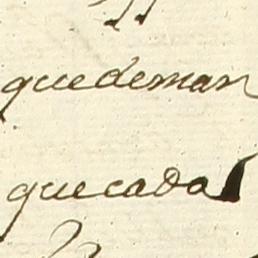 quedeman
quecada